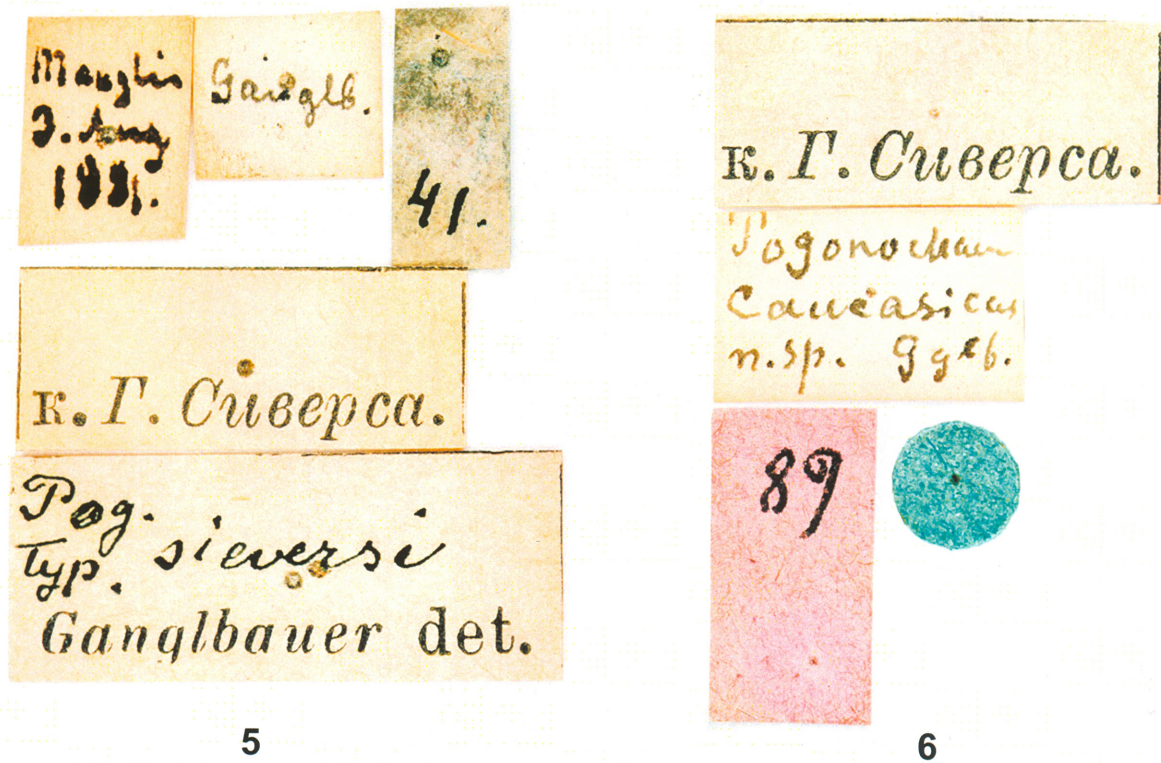 Manglis
3. Aug
1881.
Ganglb.
41.
к. Г. Сиверса.
Pog.
Typ. sieversi
Ganglbauer det.
5
к. Г. Сиверса.
Pogonochaer
Caucasicus
n.sp. Gglb.
89
6